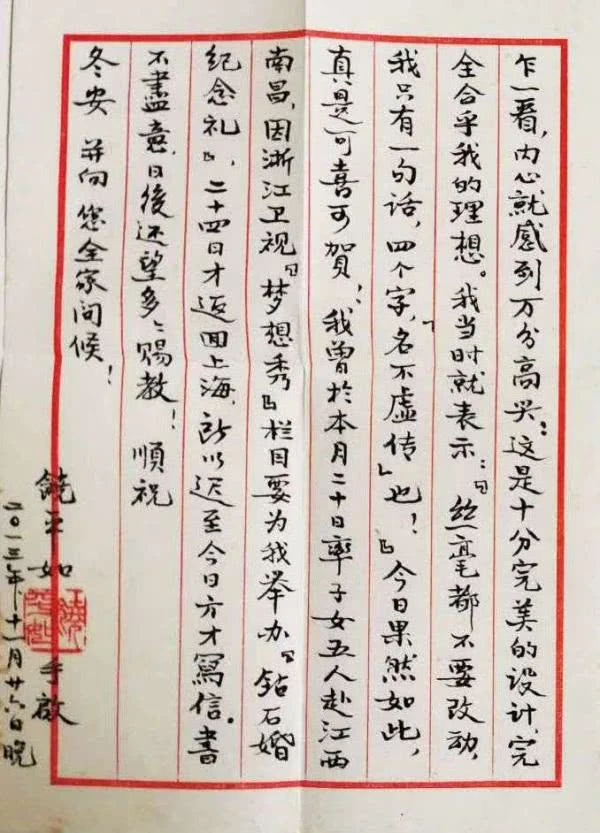 乍一看，内心就感到万分高兴：这是十分完美的设计，完
全合乎我的理想。我当时就表示：『丝毫都不要改动，
我只有一句话，四个字，「名不虚传」也！』今日果然如此，
真是可喜可贺！我曾於本月二十日率子女五人赴江西
南昌，因浙江卫视『梦想秀』栏目要为我举办『钻石婚
纪念礼』，二十四日才返回上海，所以迟至今日方才寫信。書
不盡意，日後还望多多赐教！順祝
冬安 并向 您全家问候！
饒平如 手啟
二〇一三年十一月廿六日晚